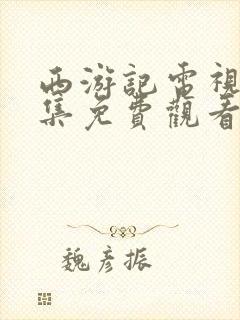 西游記電視
集免費觀看
魏彦振